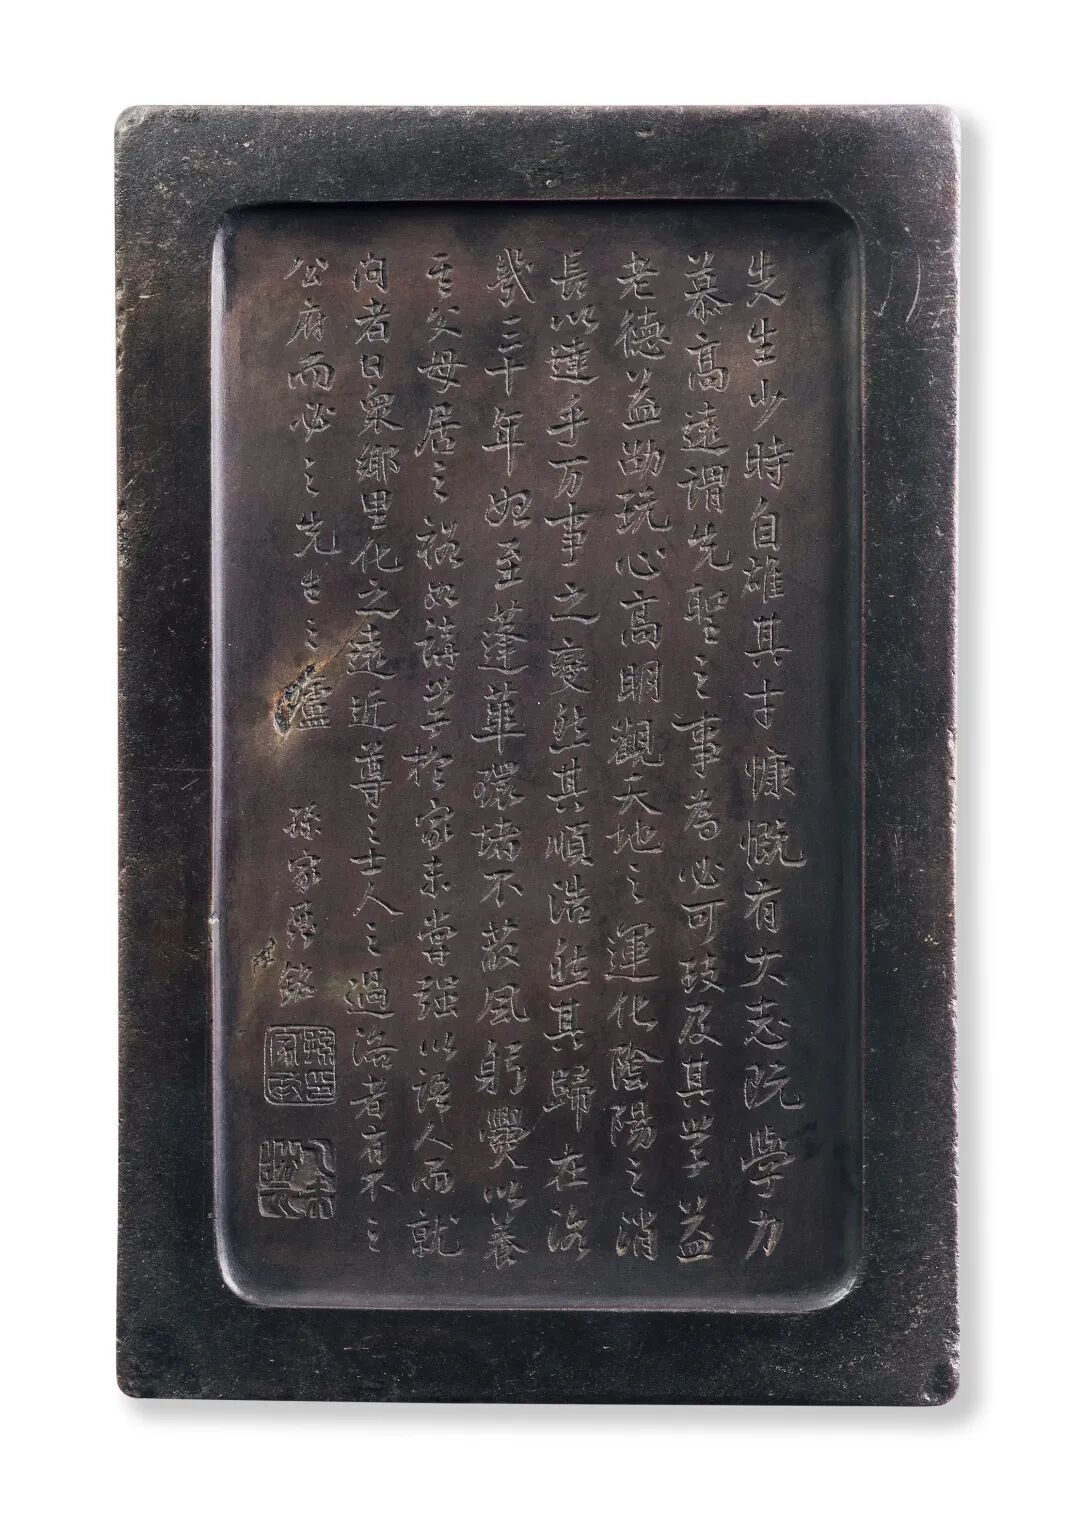 先生少時自雄其才慷慨有大志既學力
慕高遠謂先聖之事為必可致及其学益
老德益劭玩心高明觀天地之運化陰陽之消
長以達乎万事之變然其順浩然其歸在洛
幾三十年始至蓬蓽環堵不蔽風躬爨以養
其父母居之裕如講学於家未嘗强以語人而就
問者日眾鄉里化之遠近尊之士人之過洛者有不之
公府而必之先生之廬 孫家鼐銘